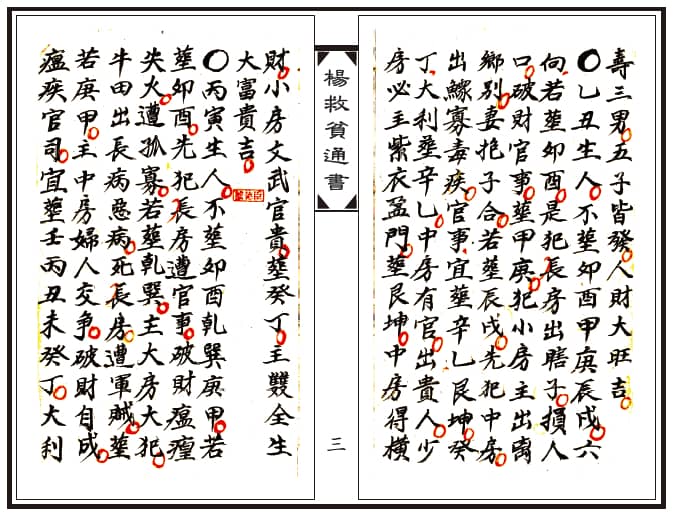 壽三男五子皆發人財大旺吉
〇乙丑生人不塟卯酉甲庚辰戍六
向若塟卯酉是犯長房出瞎子損人
口破財官事塟甲庚犯小房主出
鄉別妻抱子合若塟辰戍先犯中房
出鰥寡毒疾官事宜塟辛乙艮坤癸
丁大利塟辛乙中房有官出貴人少
房必主紫衣盈門塟艮坤中房得橫
楊救貧通書
三
財小房文武官貴塟癸丁主雙全生
大富貴吉
〇丙寅生人不塟卯酉乾巽庚甲若
塟卯酉先犯長房遭官事破財瘟㾮
失火遭孤寡若塟乾巽主大房大犯
牛田出長病惡病死長房遭軍賊塟
若庚甲主中房婦人交爭破財自成
瘟疾官司宜塟壬丙丑未癸丁大利